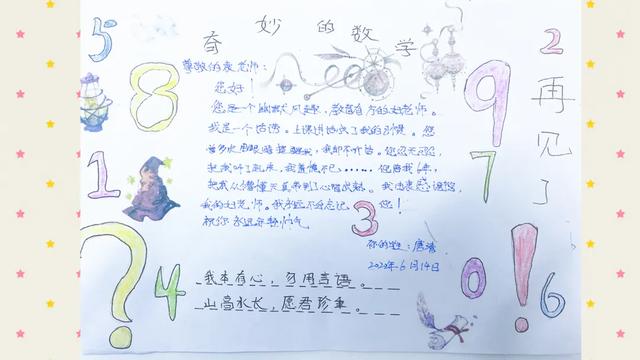 奇妙的数学
再见了
5
8
1
4
2
9
7
3
0
6
?
!
尊敬的袁老师：
您好！
您是一个幽默风趣，教育有方的好老师。
我是一个话唠。上课讲话成了我的习惯。您
曾多次用眼暗示，我却不听话。您忍无可忍，
把我叫了起来，我羞愧不已……您陪我6年，
把我从懵懂天真带到了心智成熟。我由衷感谢您，
我的好老师。我永远不会忘记您！
祝你 永远年轻帅气
你的学生：唐
2020年6月14日
我本有心，勿用言语。
山高水长，愿君珍重。